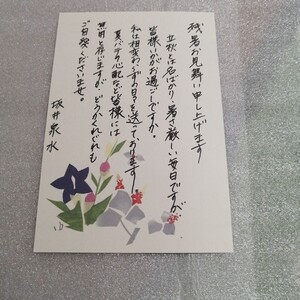 残暑お見舞い申し上げます
立秋とは名ばかり、暑さ厳しい毎日ですが、
皆様いかがお過ごしですか。
私は相変わらずの日々を送っております。
夏バテの心配など皆様には
無用と存じますが、どうかくれぐれも
ご自愛くださいませ。
坂井泉水